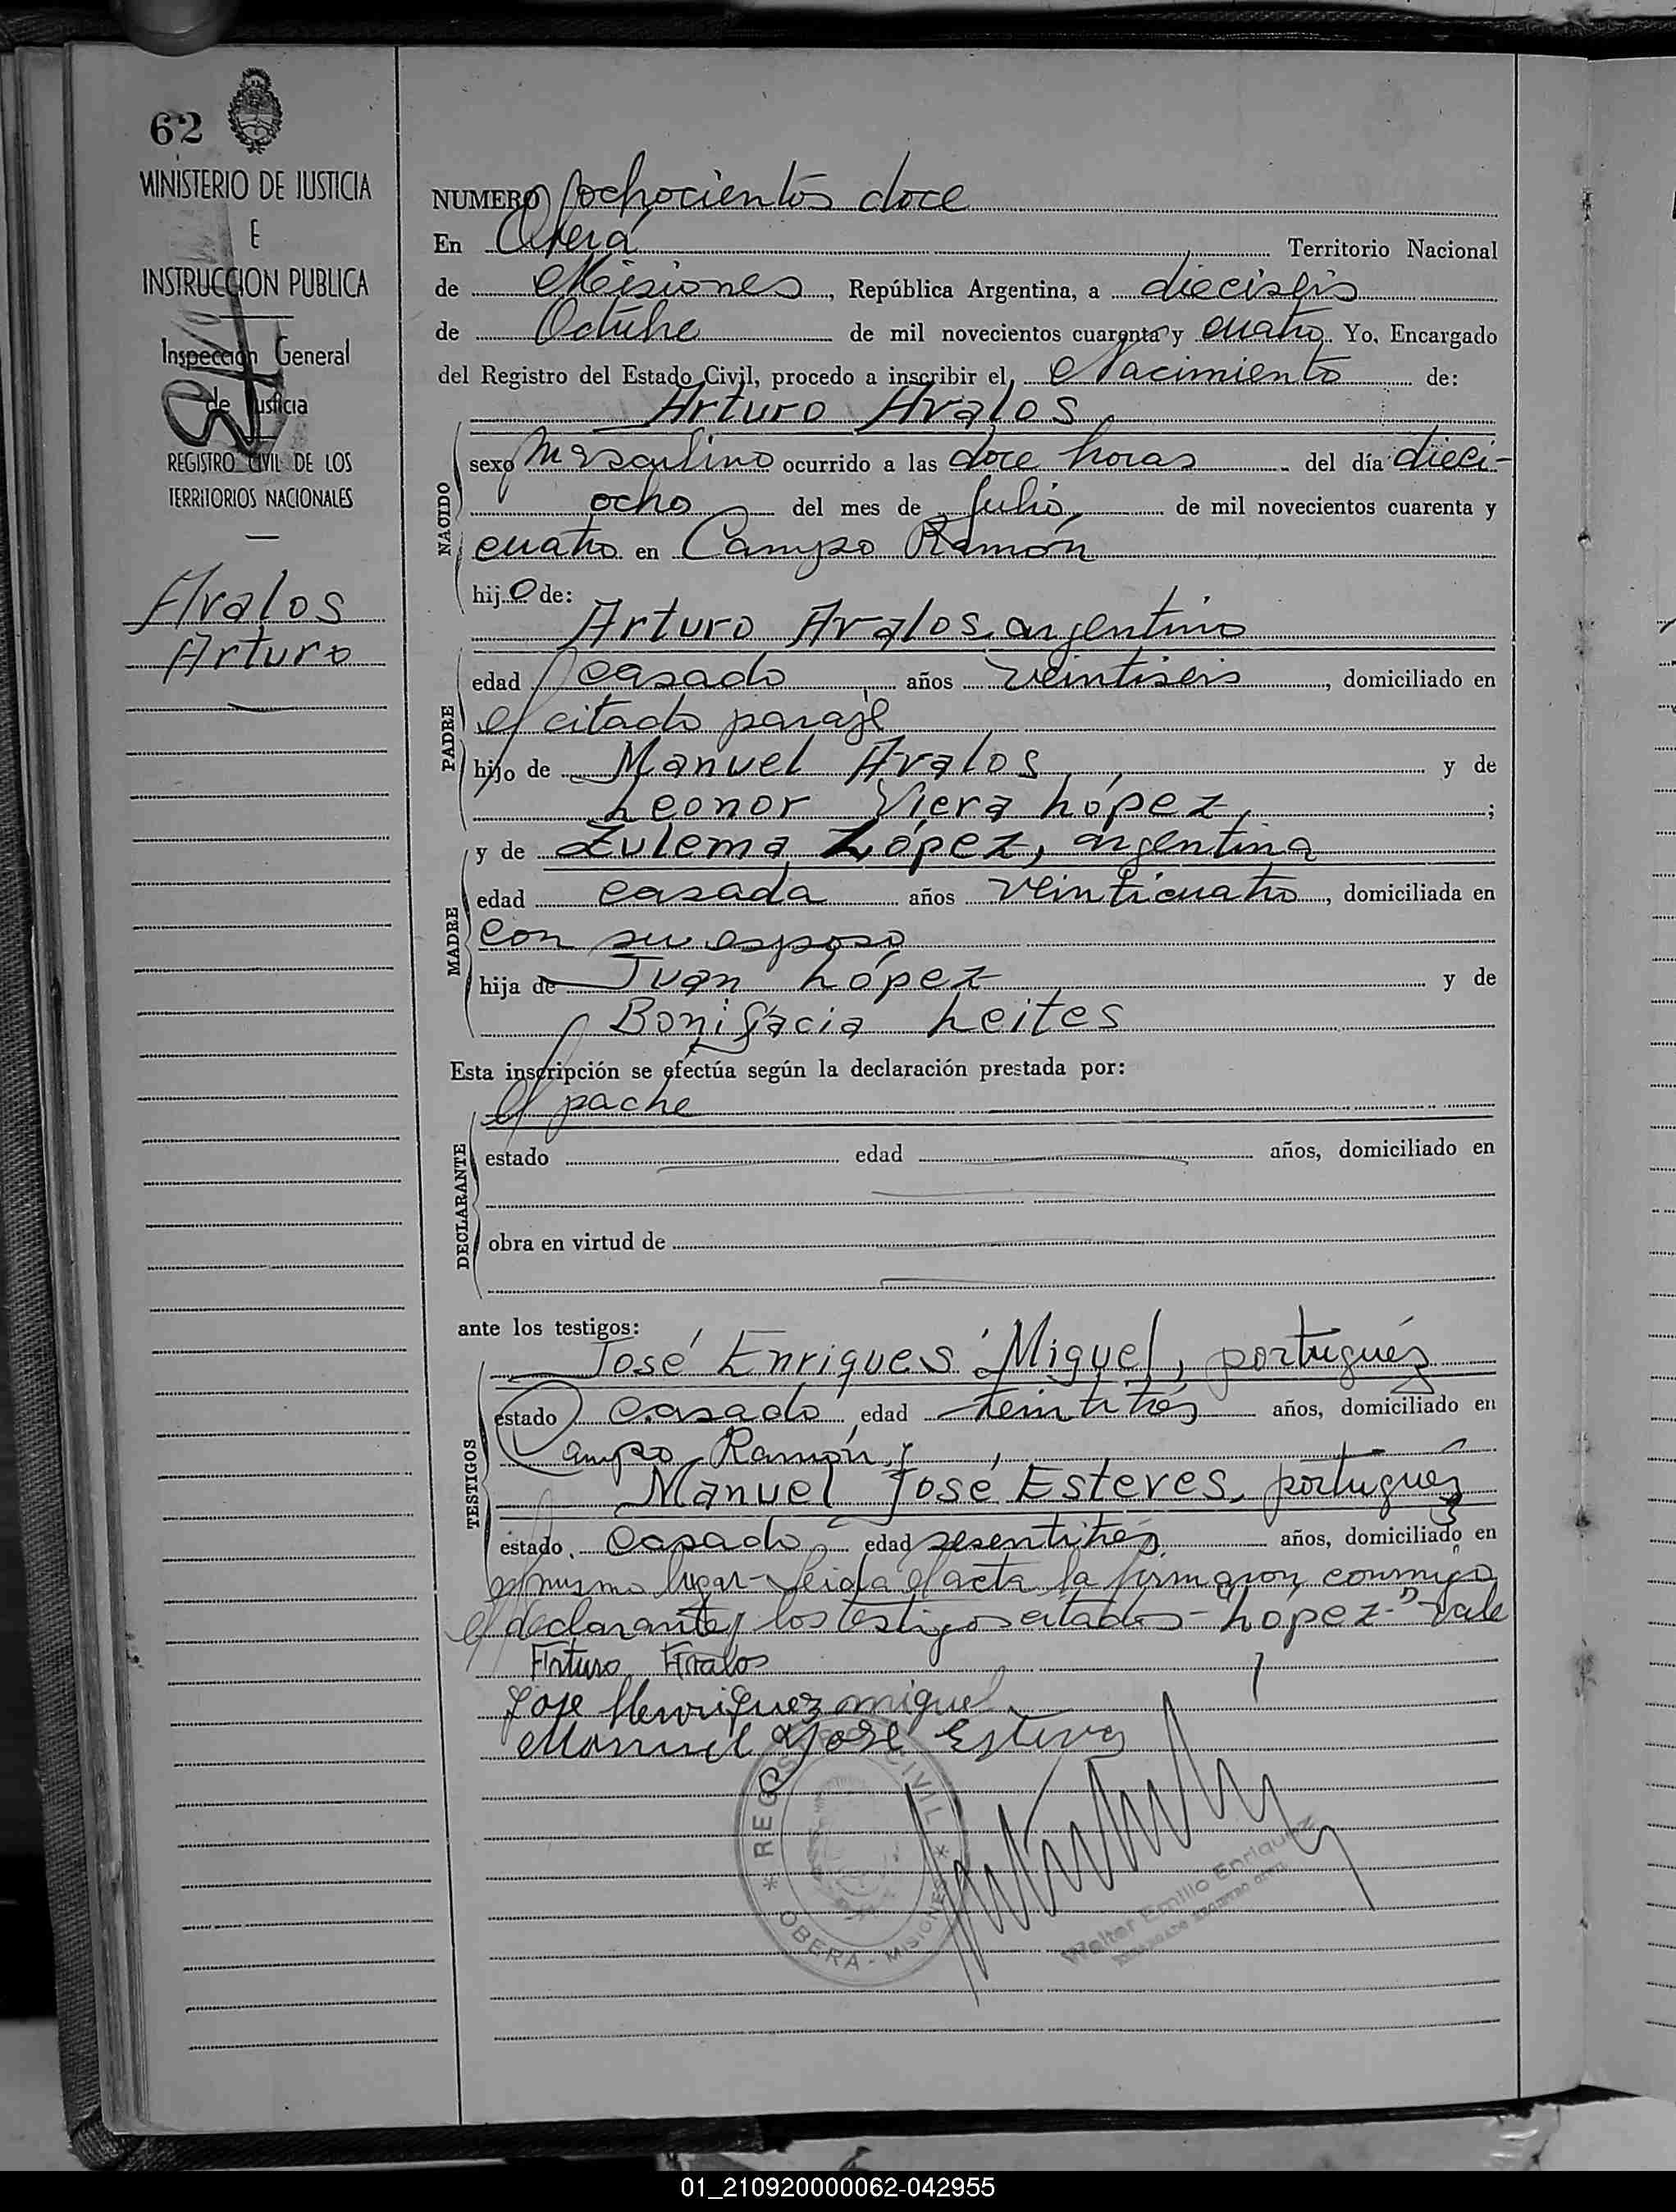 62
MINISTERIO DE JUSTICIA
E
INSTRUCCION PUBLICA
Inspección General
de Justicia
REGISTRO CIVIL DE LOS
TERRITORIOS NACIONALES
Avalos
Arturo
NUMERO ochocientos doce
En Oberá Territorio Nacional
de Misiones, República Argentina, a dieciseis
de Octubre de mil novecientos cuarenta y cuatro Yo, Encargado
del Registro del Estado Civil, procedo a inscribir el Nacimiento de:
Arturo Avalos
NACIDO
sexo Masculino ocurrido a las doce horas del día dieci-
ocho del mes de Julio, de mil novecientos cuarenta y
cuatro en Campo Ramón
hijo de:
Arturo Avalos, argentino
PADRE
edad casado años veintiseis, domiciliado en
el citado paraje
hijo de Manuel Avalos y de
Leonor Viera López, ;
y de Zulema López, argentina
MADRE
edad casada años veinticuatro, domiciliada en
con su esposo
hija de Juan López y de
Bonifacia Leites
Esta inscripción se efectúa según la declaración prestada por:
el padre
DECLARANTE
estado edad años, domiciliado en
obra en virtud de
ante los testigos:
José Enriques Miguel, portugués
TESTIGOS
estado casado edad treintitrés años, domiciliado en
Campo Ramón y
Manuel José Esteves, portugués
estado casado edad sesentitrés años, domiciliado en
el mismo lugar - Leída el acta la firmaron conmigo
el declarante y los testigos citados - López - " Vale
Arturo Avalos
Jose Henriquez miguel
Manuel Jose Esteves
* REGISTRO CIVIL *
OBERA - MISIONES
Walter Emilio Enriquez
ENCARGADO REGISTRO CIVIL
01_210920000062-042955